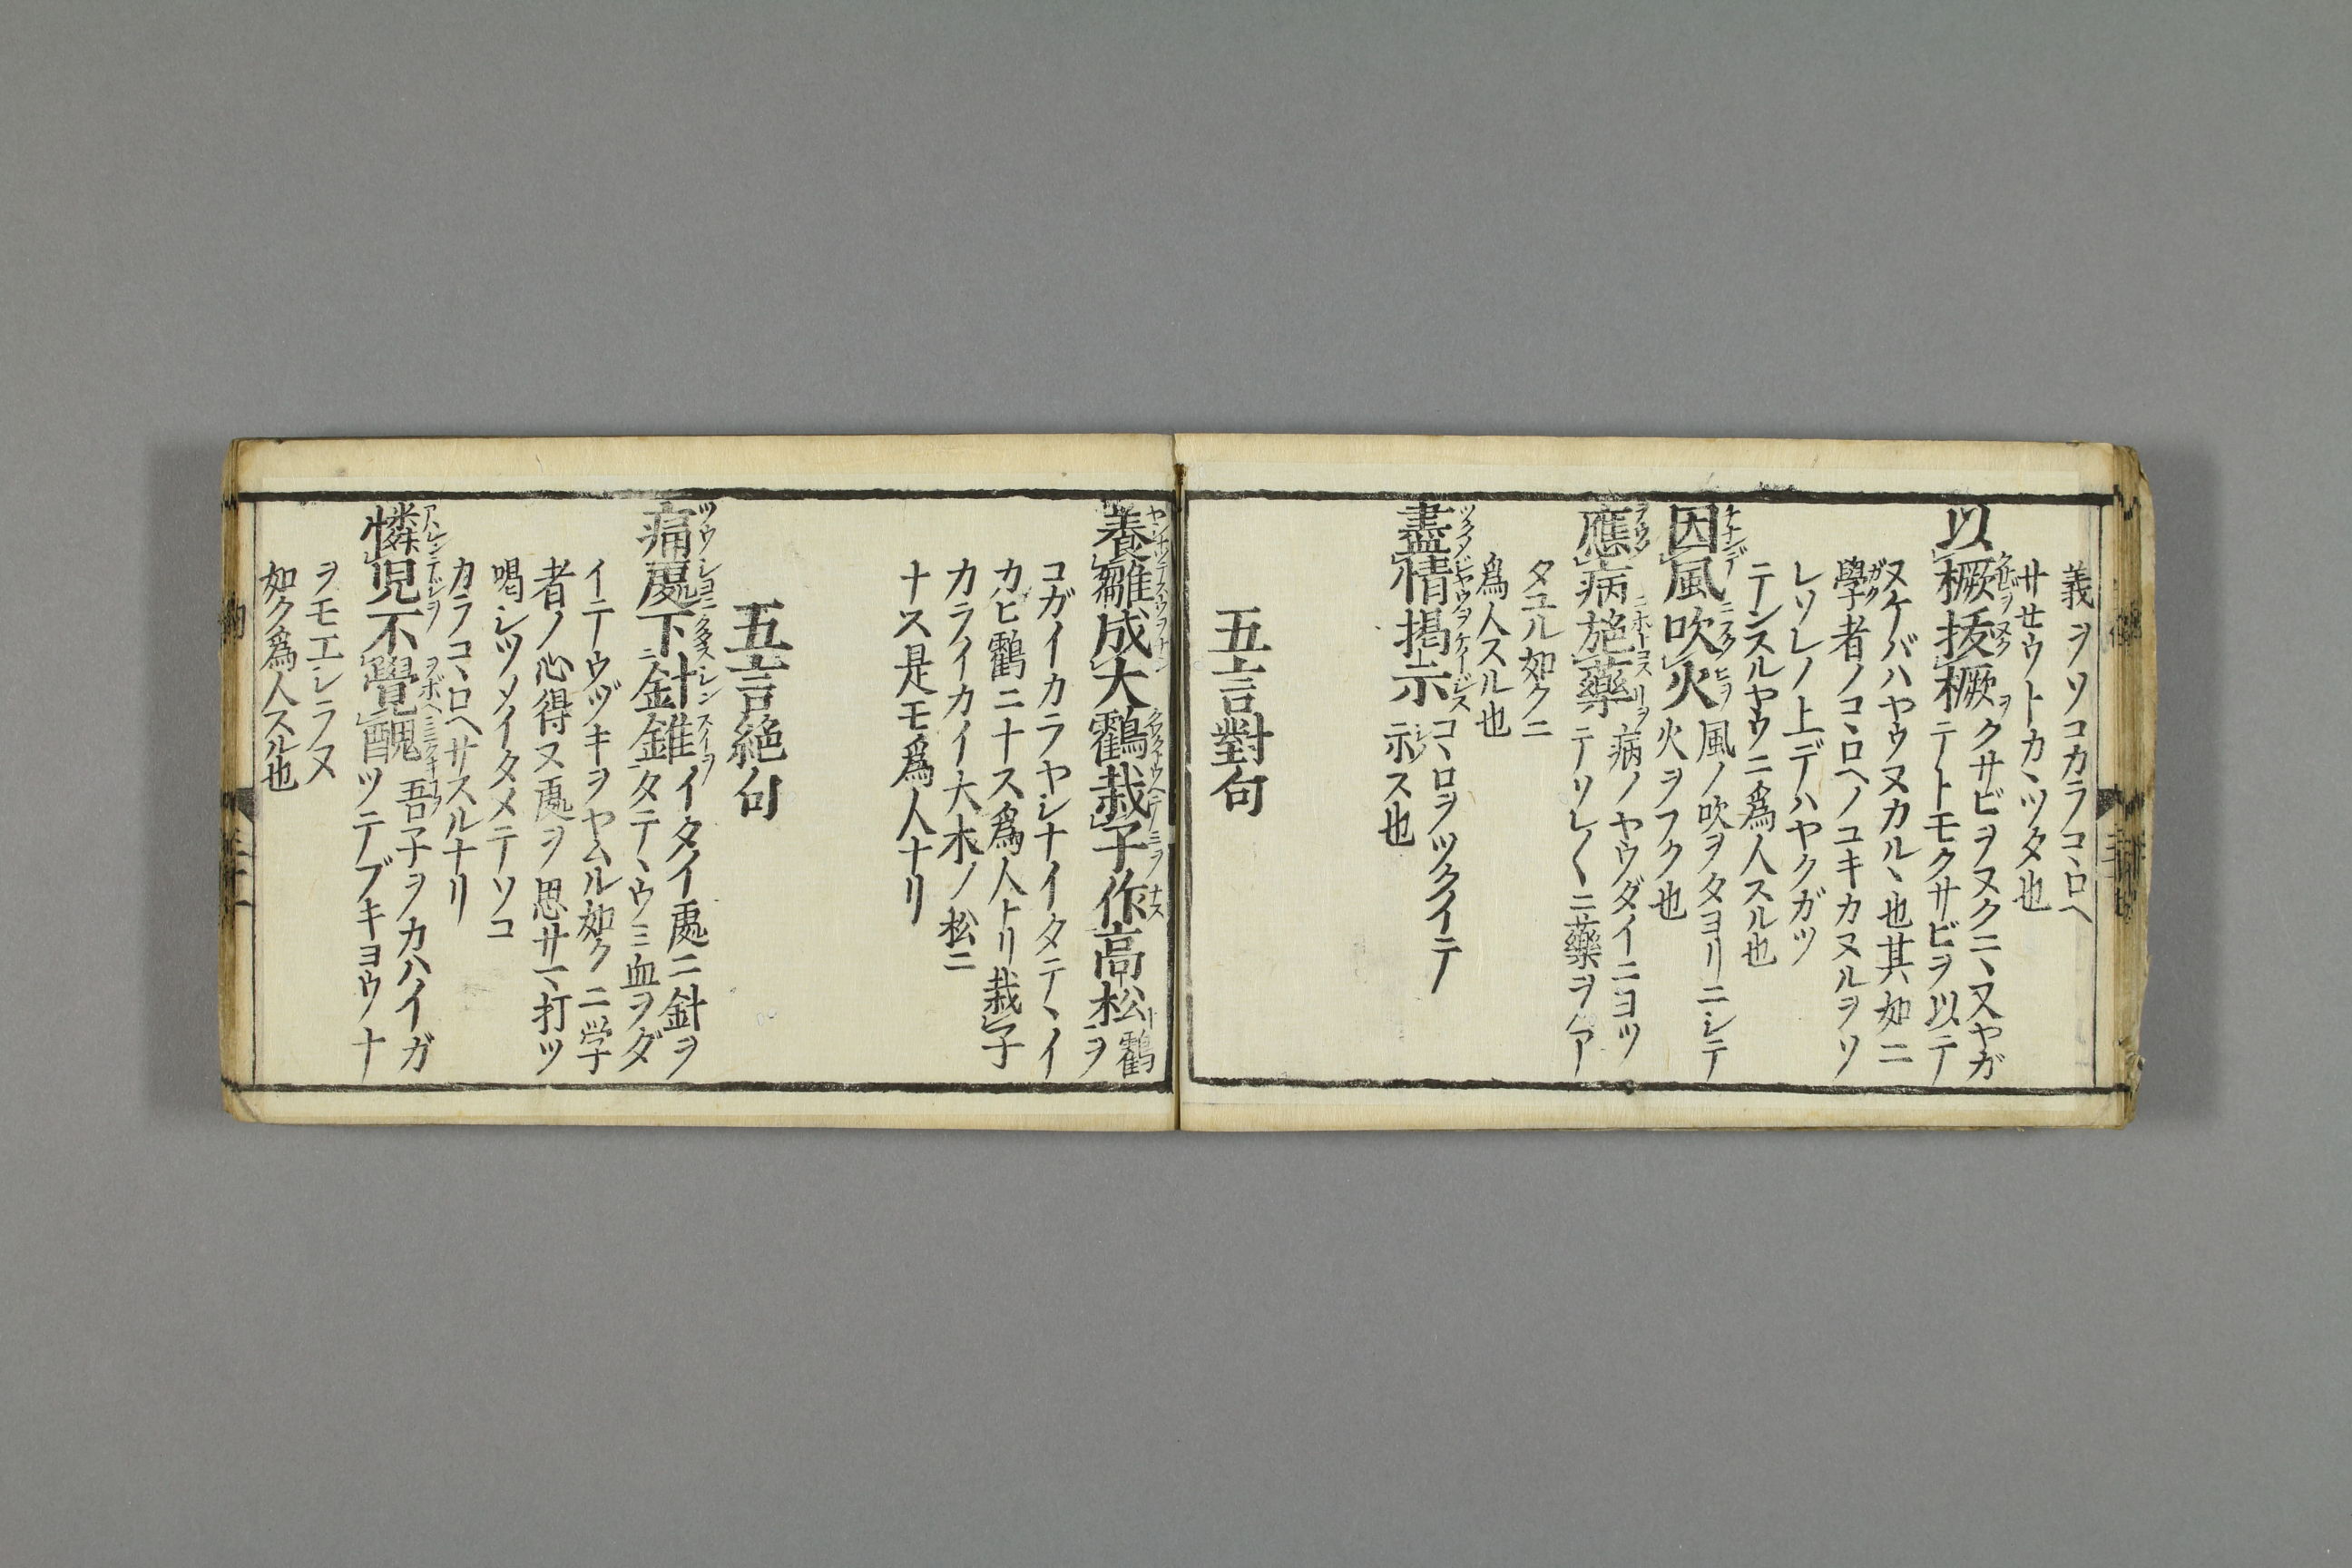 義ヲソコカラコヽロヘ
サセウトカヽツタ也
以橛抜橛 クサビヲヌクニヽ又ヤガ
テトモクサビヲ以テ
ヌケバハヤウヌカルヽ也其如ニ
學者ノコヽロヘノユキカヌルヲソ
レソレノ上デハヤクガツ
テンスルヤウニ爲人スル也
因風吹火 風ノ吹ヲタヨリニシテ
火ヲフク也
應病施藥 病ノヤウダイニヨツ
テソレ〱ニ藥ヲアア
タユル如クニ
爲人スル也
盡情掲示 コヽロヲツクイテ
示ス也
五言對句
養雛成大鶴栽子作高松 鶴
ヲ
コガイカラヤシナイタテヽイ
カヒ鸖ニナス爲人トリ栽子
カライカイ大木ノ松ニ
ナス是モ爲人ナリ
五言絶句
痛處下針錐 イタイ處ニ針ヲ
タテヽウミ血ヲダ
イテウヅキヲヤムル如クニ学
者ノ心得ヌ處ヲ思サマ打ツ
喝シツメイタメテソコ
カラコヽロヘサスルナリ
憐児不覺醜 吾子ヲカハイガ
ツテブキヨウナ
ヲモエシラヌ
如ク爲人スル也